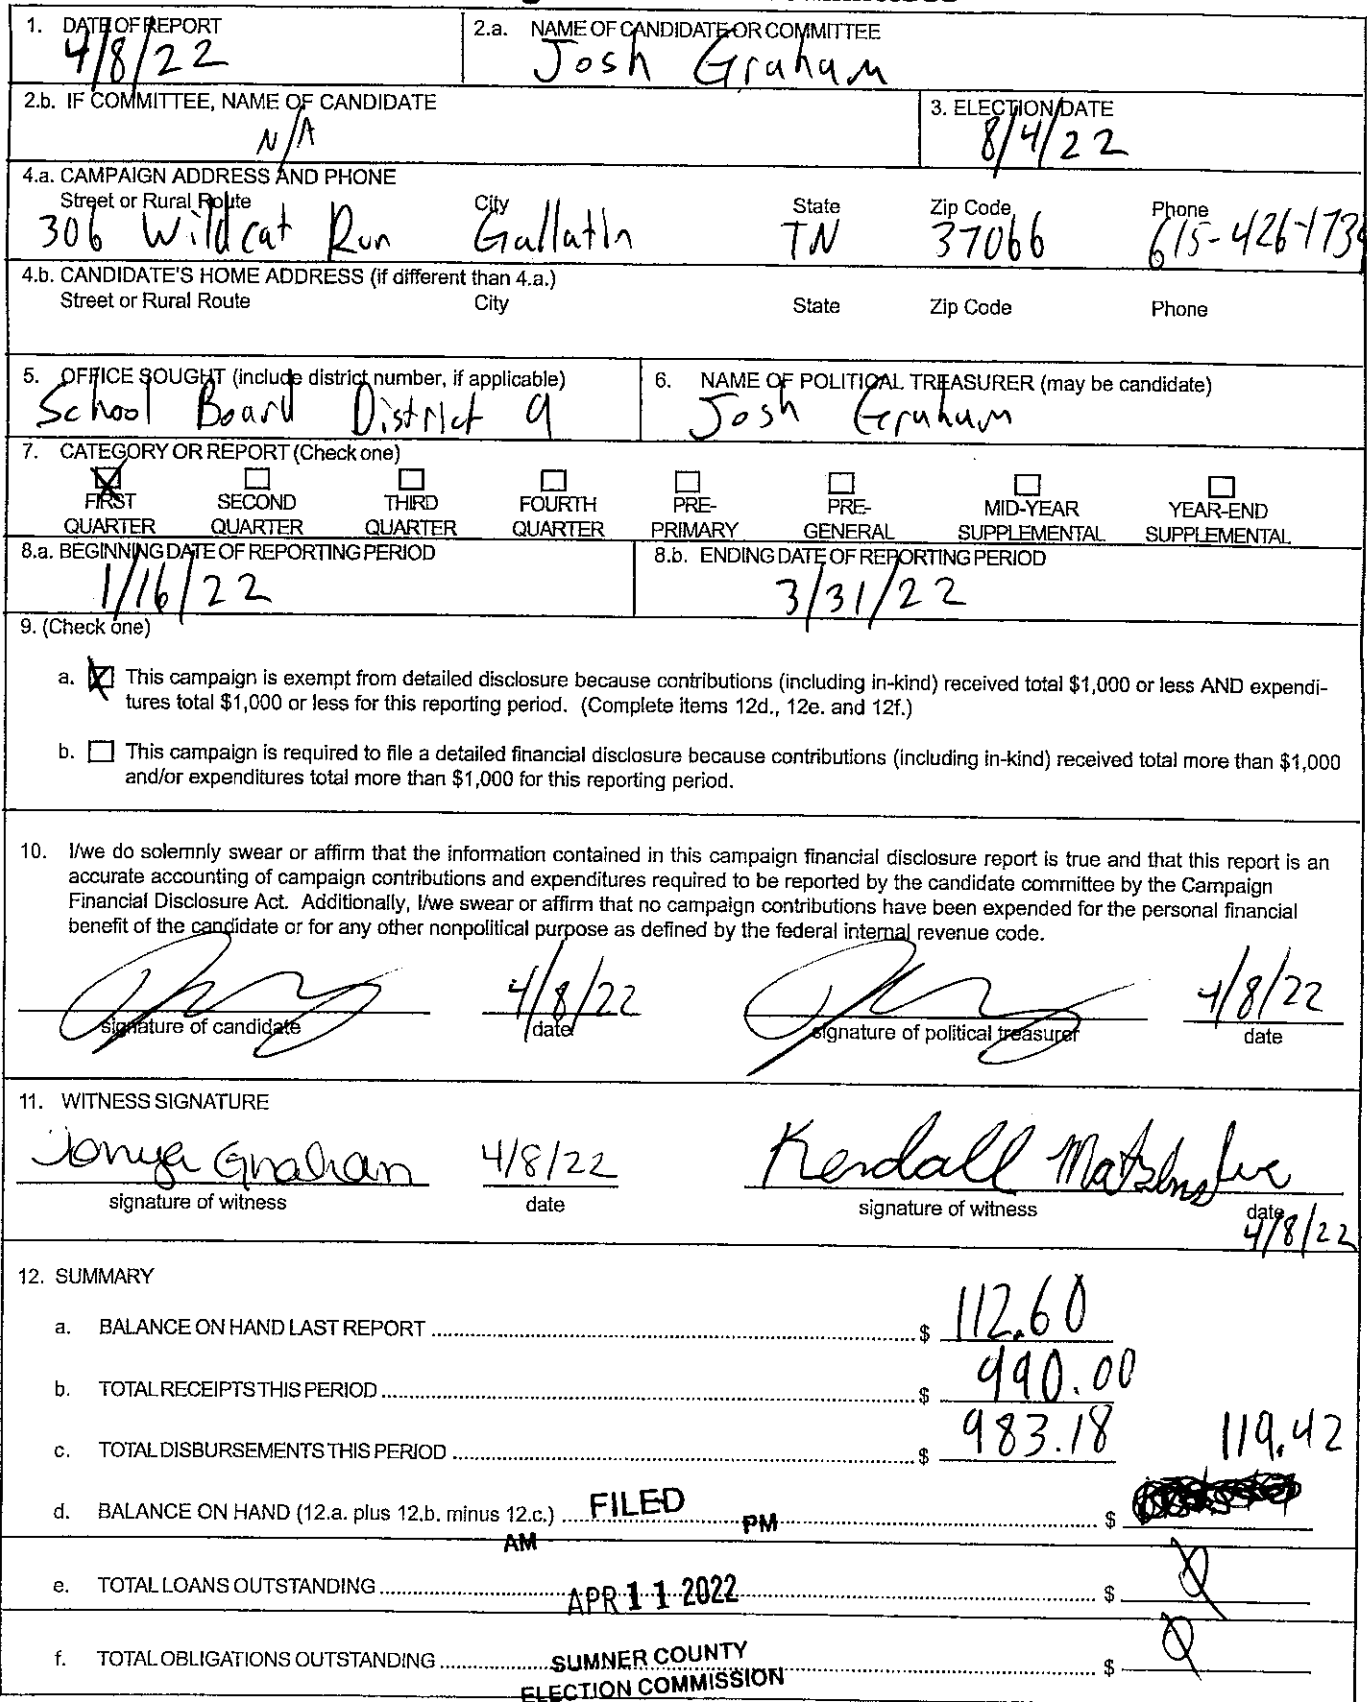 1. DATE OF REPORT
4/8/22
2.a. NAME OF CANDIDATE OR COMMITTEE
Josh Graham
2.b. IF COMMITTEE, NAME OF CANDIDATE
N/A
3. ELECTION DATE
8/4/22
4.a. CAMPAIGN ADDRESS AND PHONE
Street or Rural Route City State Zip Code Phone
306 Wildcat Run Gallatin TN 37066 615-426-1739
4.b. CANDIDATE'S HOME ADDRESS (if different than 4.a.)
Street or Rural Route City State Zip Code Phone
5. OFFICE SOUGHT (include district number, if applicable)
School Board District 9
6. NAME OF POLITICAL TREASURER (may be candidate)
Josh Graham
7. CATEGORY OR REPORT (Check one)
FIRST SECOND THIRD FOURTH PRE- PRE- MID-YEAR YEAR-END
QUARTER QUARTER QUARTER QUARTER PRIMARY GENERAL SUPPLEMENTAL SUPPLEMENTAL
8.a. BEGINNING DATE OF REPORTING PERIOD
1/16/22
8.b. ENDING DATE OF REPORTING PERIOD
3/31/22
9. (Check one)
a. This campaign is exempt from detailed disclosure because contributions (including in-kind) received total $1,000 or less AND expendi-
tures total $1,000 or less for this reporting period. (Complete items 12d., 12e. and 12f.)
b. This campaign is required to file a detailed financial disclosure because contributions (including in-kind) received total more than $1,000
and/or expenditures total more than $1,000 for this reporting period.
10. I/we do solemnly swear or affirm that the information contained in this campaign financial disclosure report is true and that this report is an
accurate accounting of campaign contributions and expenditures required to be reported by the candidate committee by the Campaign
Financial Disclosure Act. Additionally, I/we swear or affirm that no campaign contributions have been expended for the personal financial
benefit of the candidate or for any other nonpolitical purpose as defined by the federal internal revenue code.
4/8/22 4/8/22
signature of candidate date signature of political treasurer date
11. WITNESS SIGNATURE
Tonya Graham 4/8/22 Kendall
signature of witness date signature of witness date
4/8/22
12. SUMMARY
a. BALANCE ON HAND LAST REPORT $ 112.60
b. TOTAL RECEIPTS THIS PERIOD $ 990.00
c. TOTAL DISBURSEMENTS THIS PERIOD $ 983.18 119.42
d. BALANCE ON HAND (12.a. plus 12.b. minus 12.c.) $
FILED
AM PM
e. TOTAL LOANS OUTSTANDING $ 0
APR 11 2022
f. TOTAL OBLIGATIONS OUTSTANDING $ 0
SUMNER COUNTY
ELECTION COMMISSION